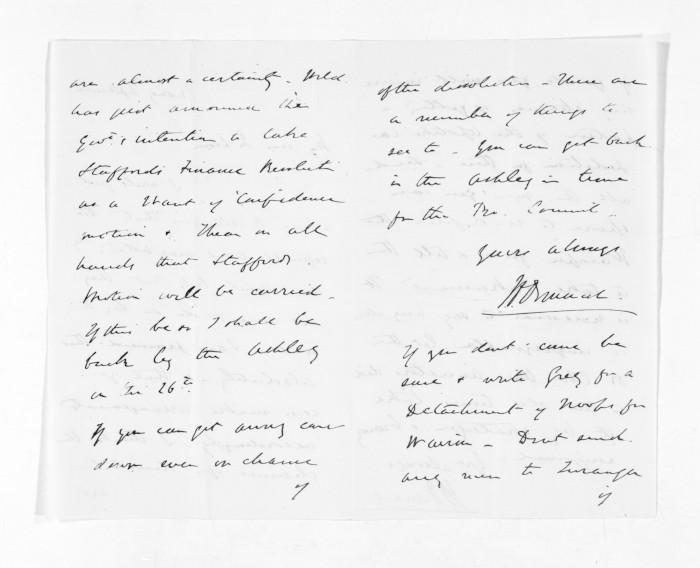 are almost a certainty - Weld
has just announced the
Govt's intention to take
Staffords Finance Resolution
as a Want of Confidence
motion & I hear on all
hands that Staffords
Motion will be carried -
If this be so I shall be
back by the Ashley
on the 26th.
If you can get away come
down even on chance
of
of the dissolution - There are
a number of things to
see to - You can get back
in the Ashley in time
for the Pro. Council.
Yours always
J D Ormond
If you don't come be
sure & write Grey for a
Detachment of troops for
Wairoa - Don't send
any men to Turanga
if